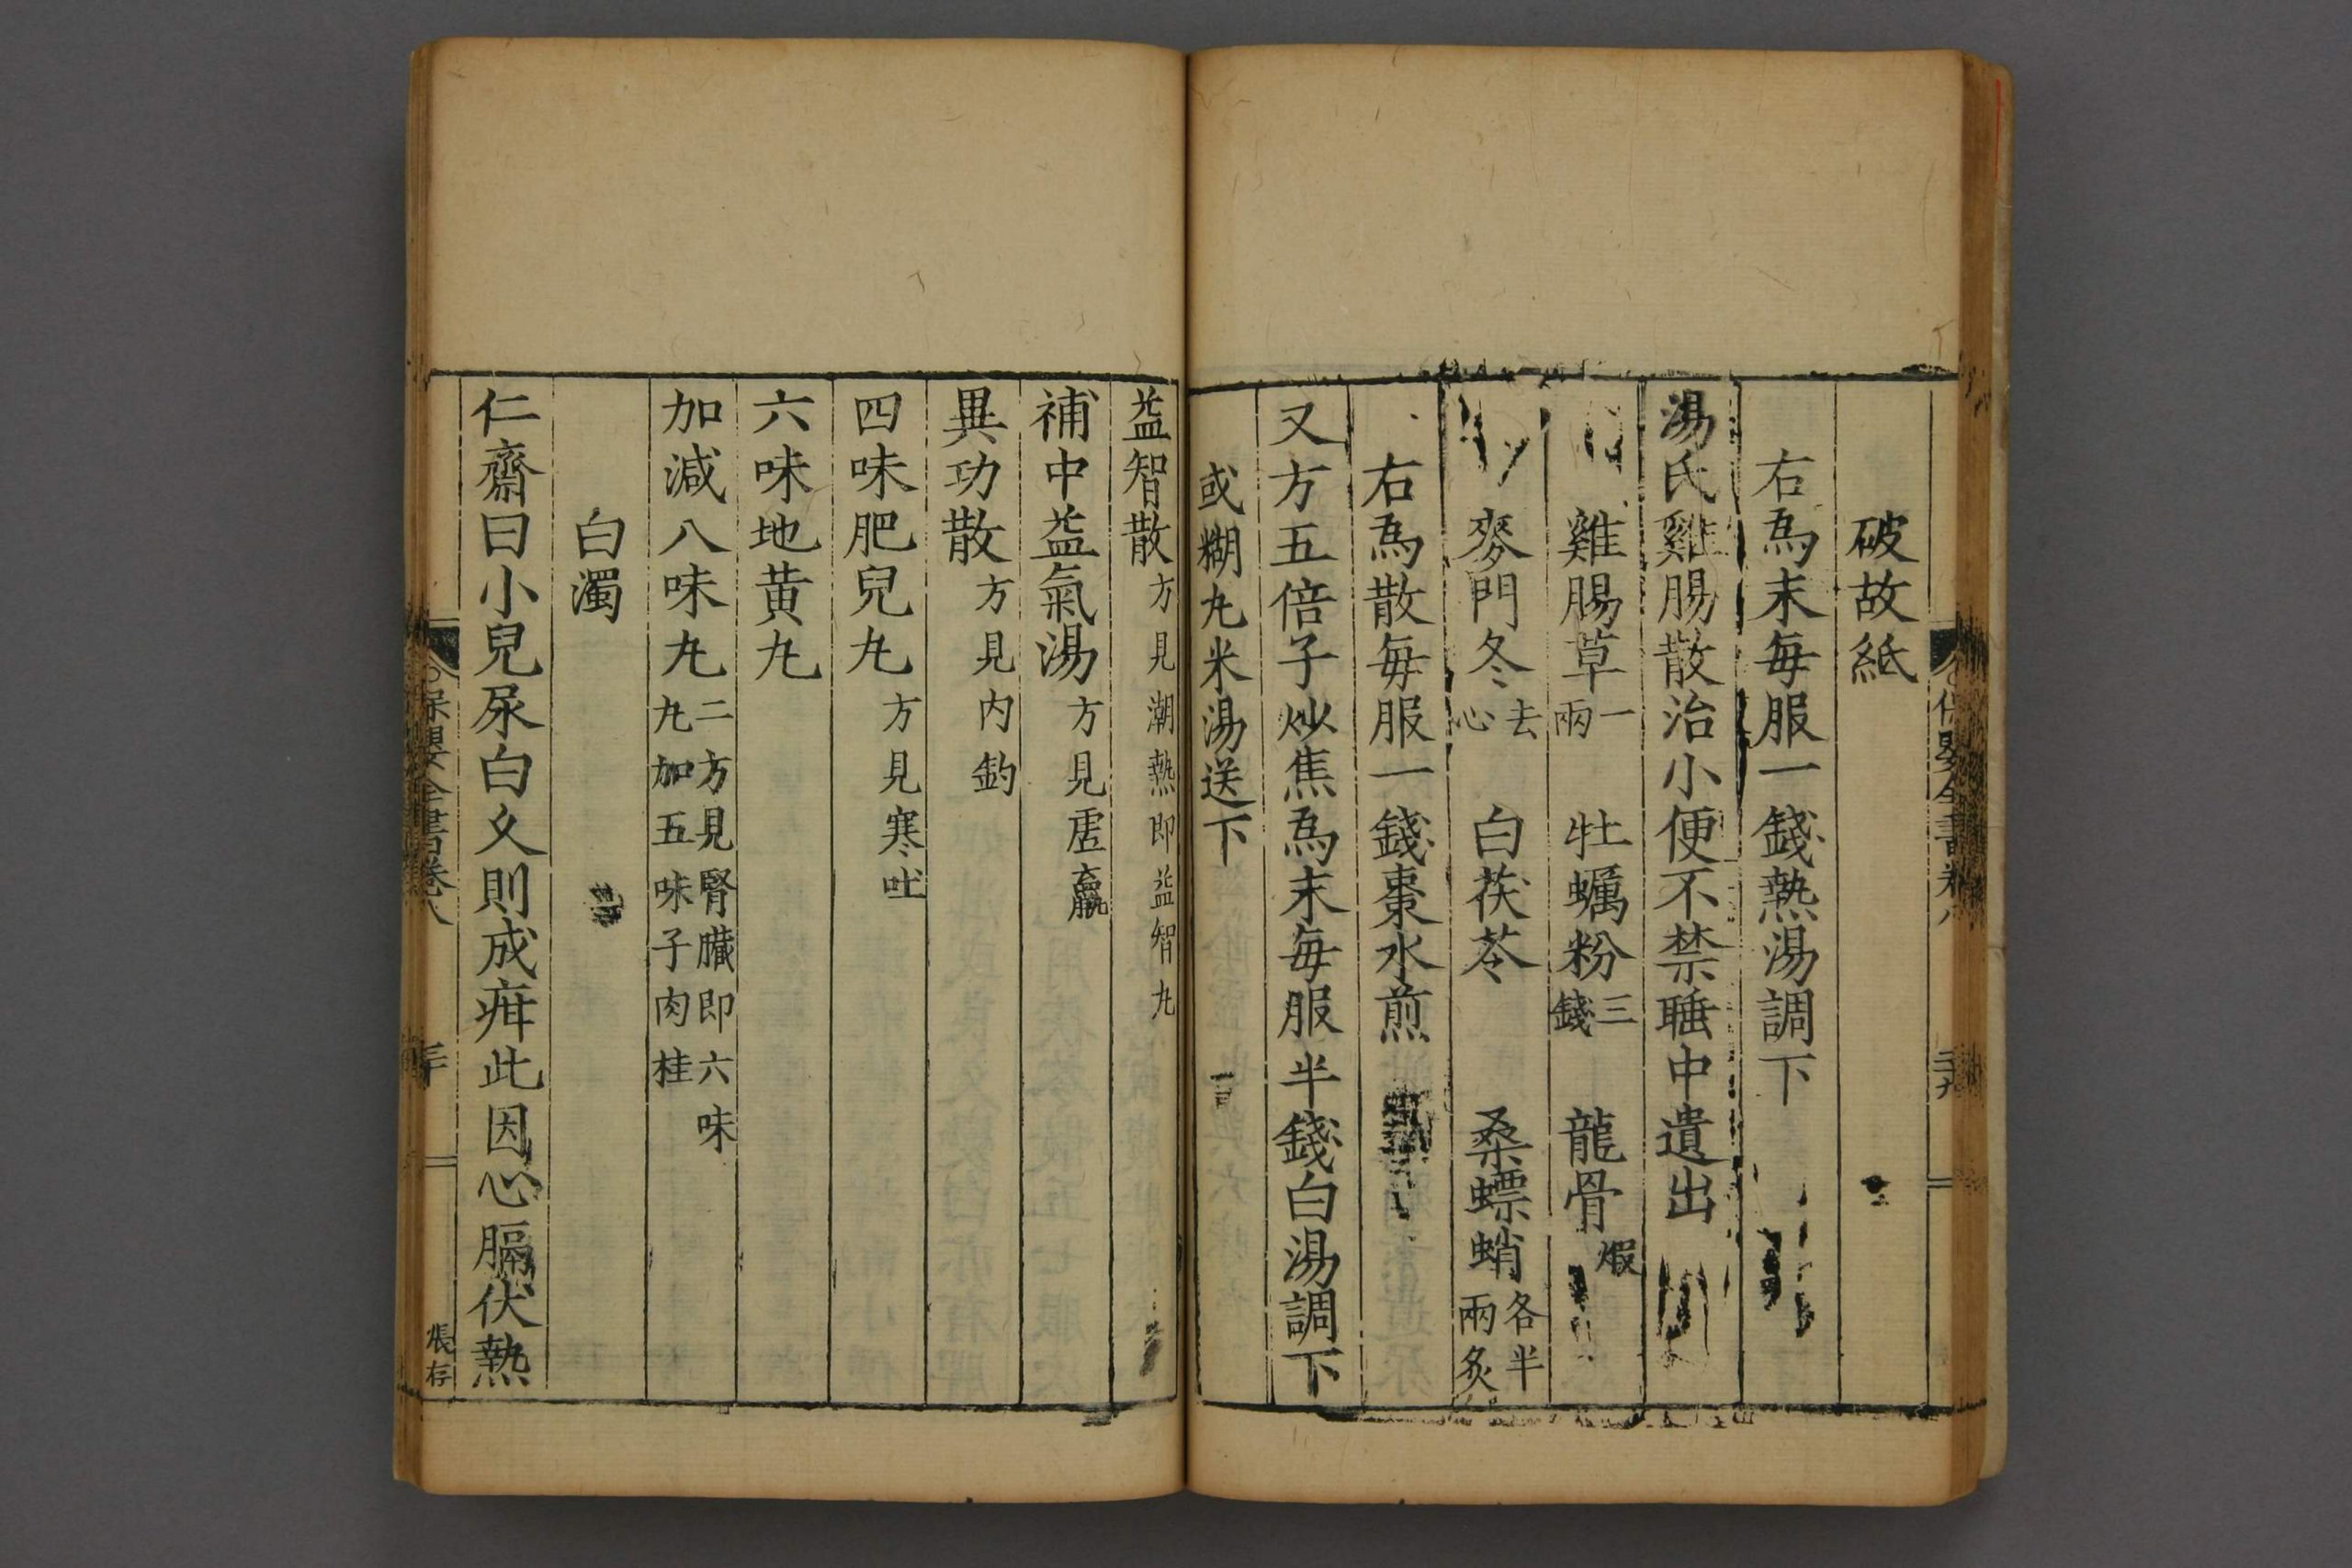 破故紙
右為末每服一錢熱湯調下
湯氏雞腸散治小便不禁睡中遺出
雞腸草一兩 牡蠣粉三錢 龍骨煆
麥門冬去心 白茯苓 桑螵蛸各半兩炙
右為散每服一錢棗水煎
又方五倍子炒焦為末每服半錢白湯調下
或糊丸米湯送下
益智散方見潮熱即益智丸
補中益氣湯方見虛羸
異功散方見内釣
四味肥兒丸方見寒吐
六味地黄丸
加減八味丸二方見腎臟即六味丸加五味子肉桂
白濁
仁齋曰小兒尿白久則成疳此因心膈伏熱
保嬰全書卷八
三十
張存